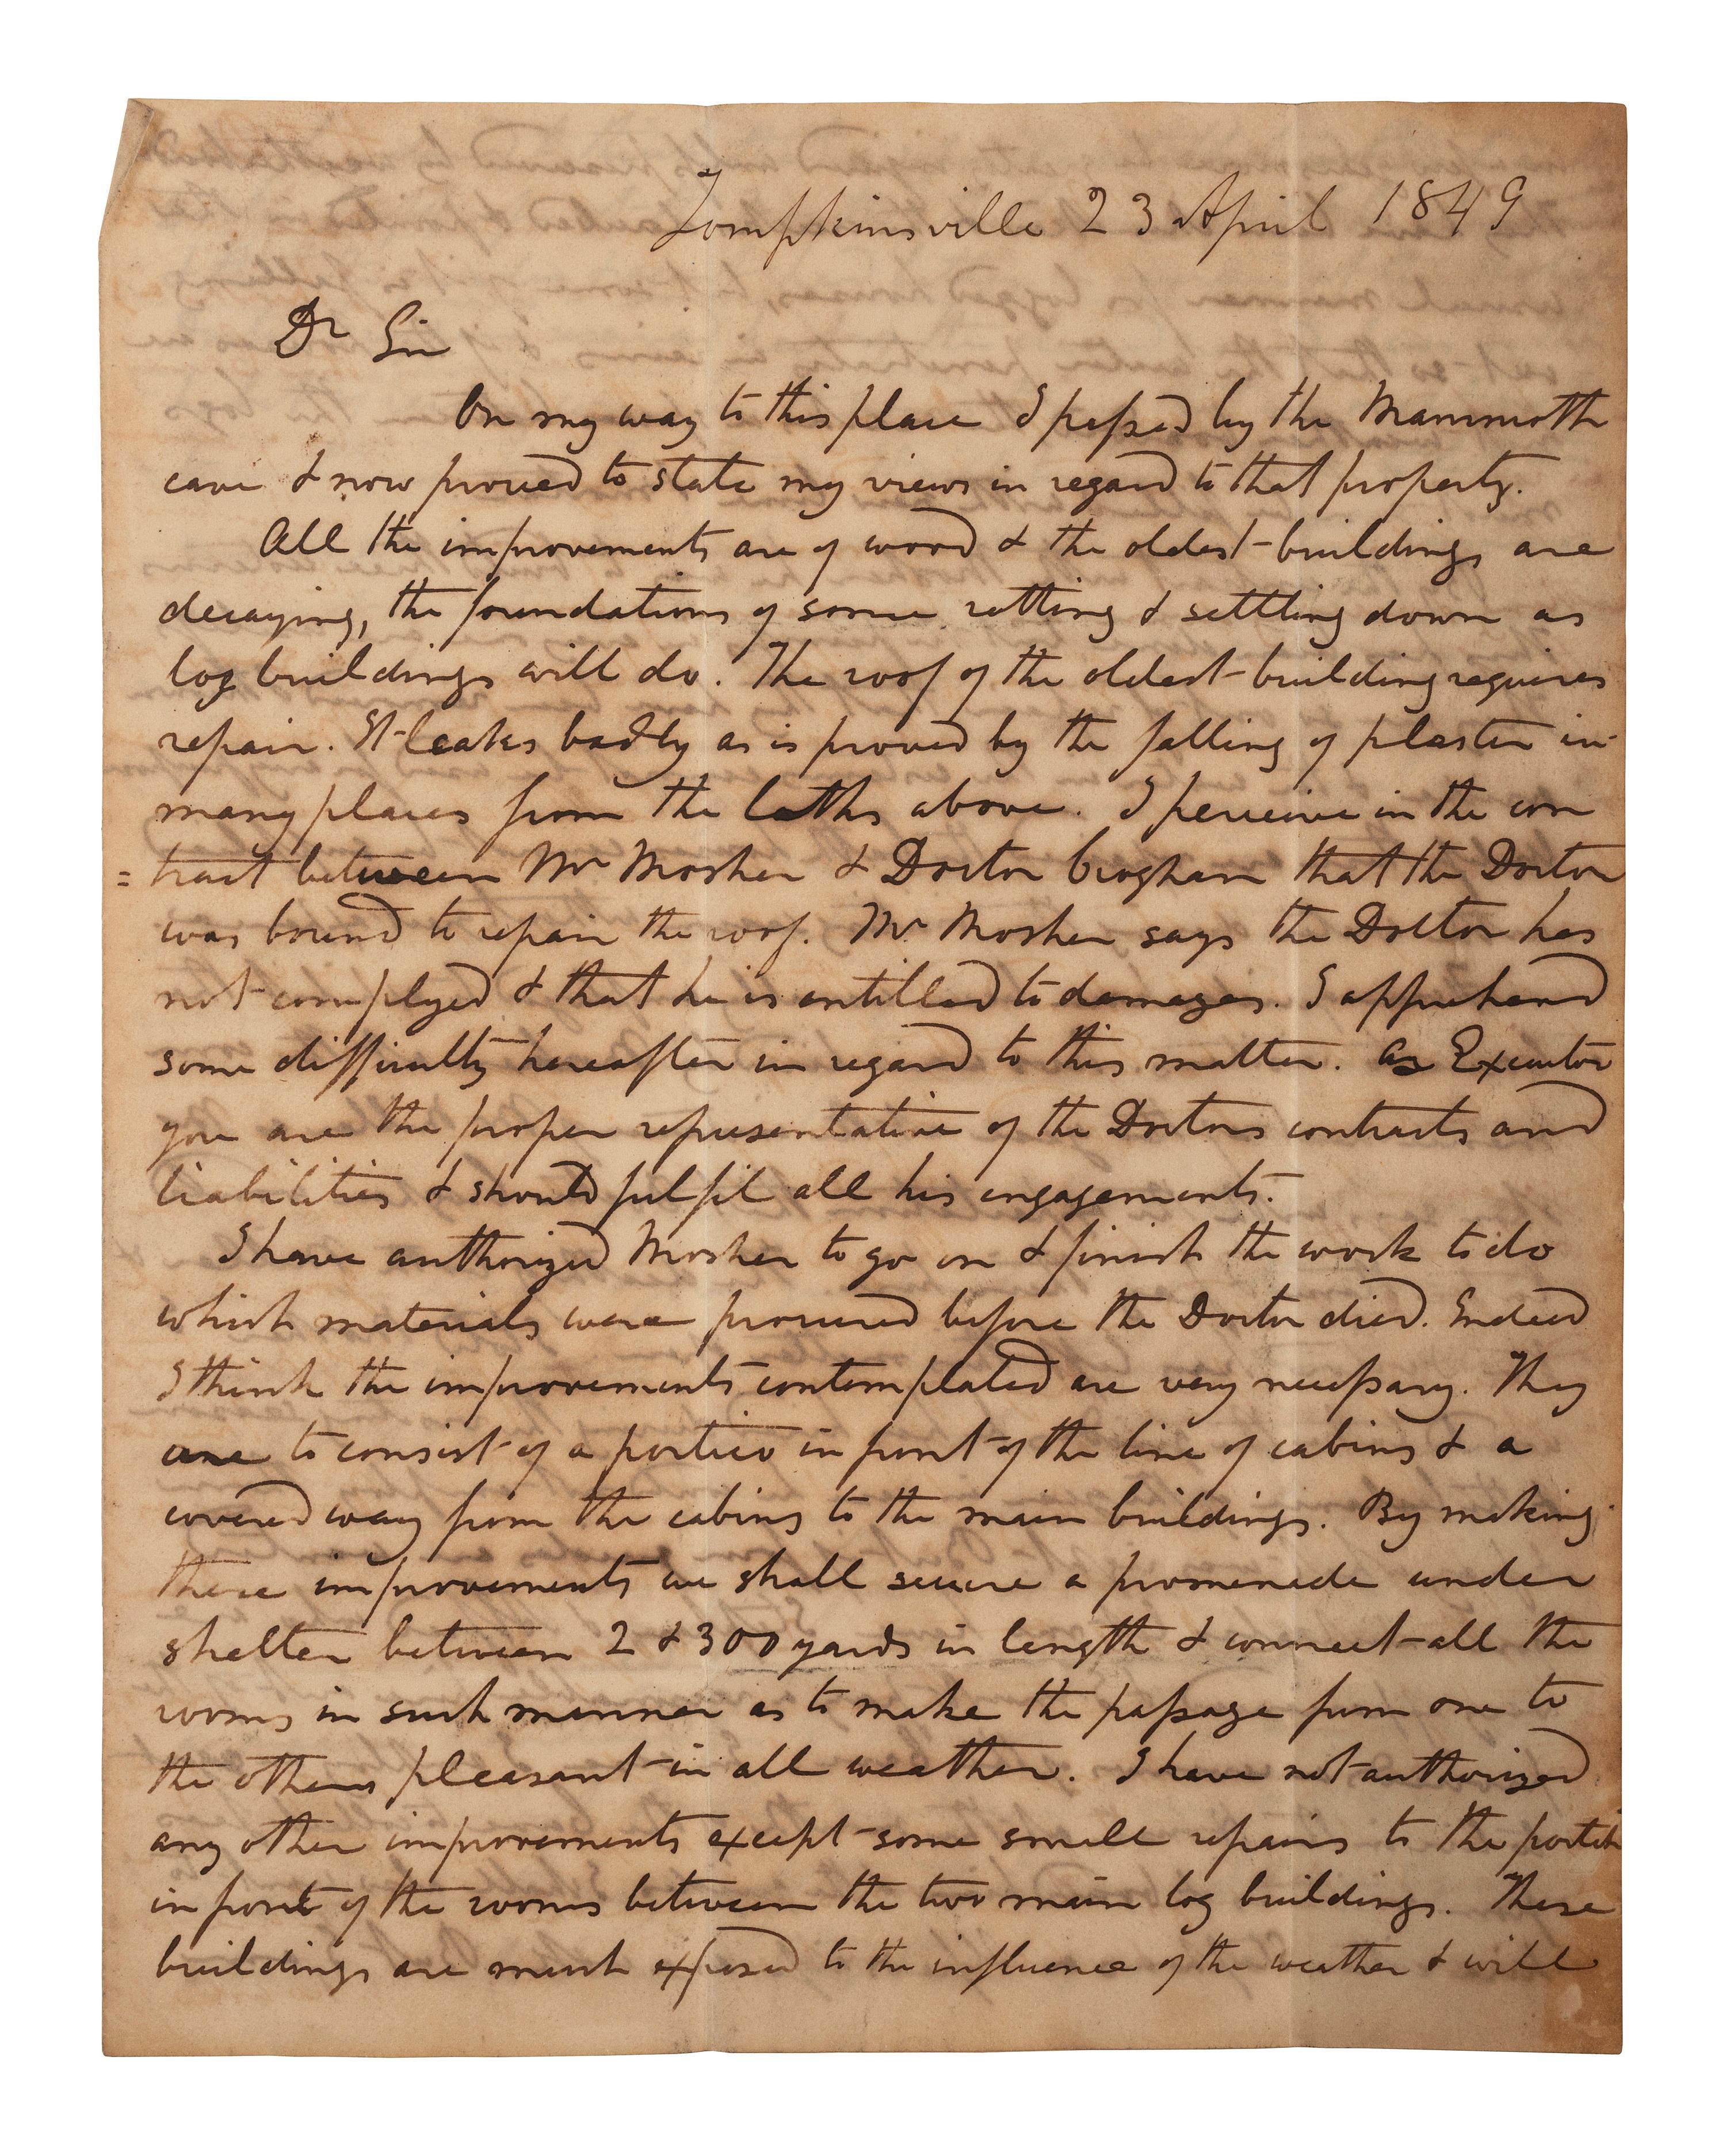 Tompkinsville 23 April 1849
Dr Sir
On my way to this place I passed by the Mammoth
cave & now proceed to state my views in regard to that property.
All the improvements are of wood & the oldest buildings are
decaying, the foundations of some rotting & settling down as
log buildings will do. The roof of the oldest building requires
repair. It leaks badly as is proved by the falling of plaster in
many places from the laths above. I perceive in the con
= tract between Mr Mosher & Doctor Croghan that the Doctor
was bound to repair the roof. Mr Mosher says the Doctor has
not complyed & that he is entitled to damages. I apprehend
some difficulty hereafter in regard to this matter. As Executor
you are the proper representative of the Doctors contracts and
liabilities & should fulfil all his engagements.
I have authorized Mosher to go on & finish the work to do
which materials were procured before the Doctor died. Indeed
I think the improvements contemplated are very necessary. They
are to consist of a portico in front of the line of cabins & a
covered way from the cabins to the main buildings. By making
these improvements we shall secure a promenade under
shelter between 2 & 300 yards in length & connect all the
rooms in such manner as to make the passage from one to
the others pleasant in all weather. I have not authorized
any other improvements except some small repairs to the portico
in front of the rooms between the two main log buildings. These
buildings are much exposed to the influence of the weather & will